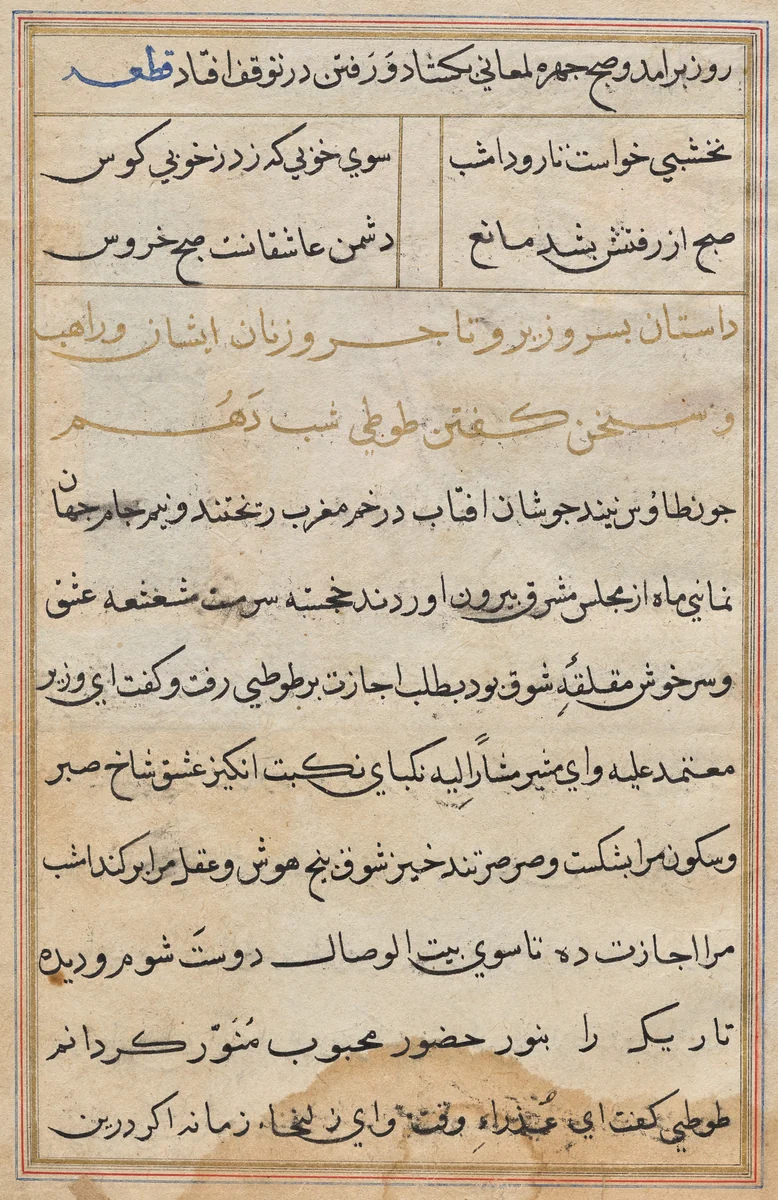 روز برامد و صبح چهره لمعاني بکشاد وَرَفتن در توقف افتاد قطعه
نخشبي خواست تا رود امشب سوي خوبي که زد ز خوبي کوس
صبح از رفتنش بشد مانع دشمن عاشقانست صبح خروس
داستان بسر وزير و تاجر و زنان ايشان و راهب
و سخن کفتن طوطي شب دَهُم
جون طاوُس افتاب در خم مغرب ريختند و نيم جام جهان
نماني ماه از مجلس مشرق بيرون اوردند خجسته سرمست مشغشعه عشق
و سرخوش مقلقهٔ شوق بود بطلب اجازت بر طوطي رفت و کفت اي وزير
معتمد عليه و اي مشير مشاراً اِليه نکباي نکبت انکيز عشق شاخ صبر
و سکون مرا بشکست و صرصر تند خيز شوق بيخ هوش و عقل مرا بر کند امشب
مرا اجازت ده تا سوي بيت الوصال دوستَ شوم و ديده
تاريک را بنور حضور محبوب مُنَوّر کردانم
طوطي کفت اي عُذراءِ وقت و اي زليخاء زمانه اکر درين